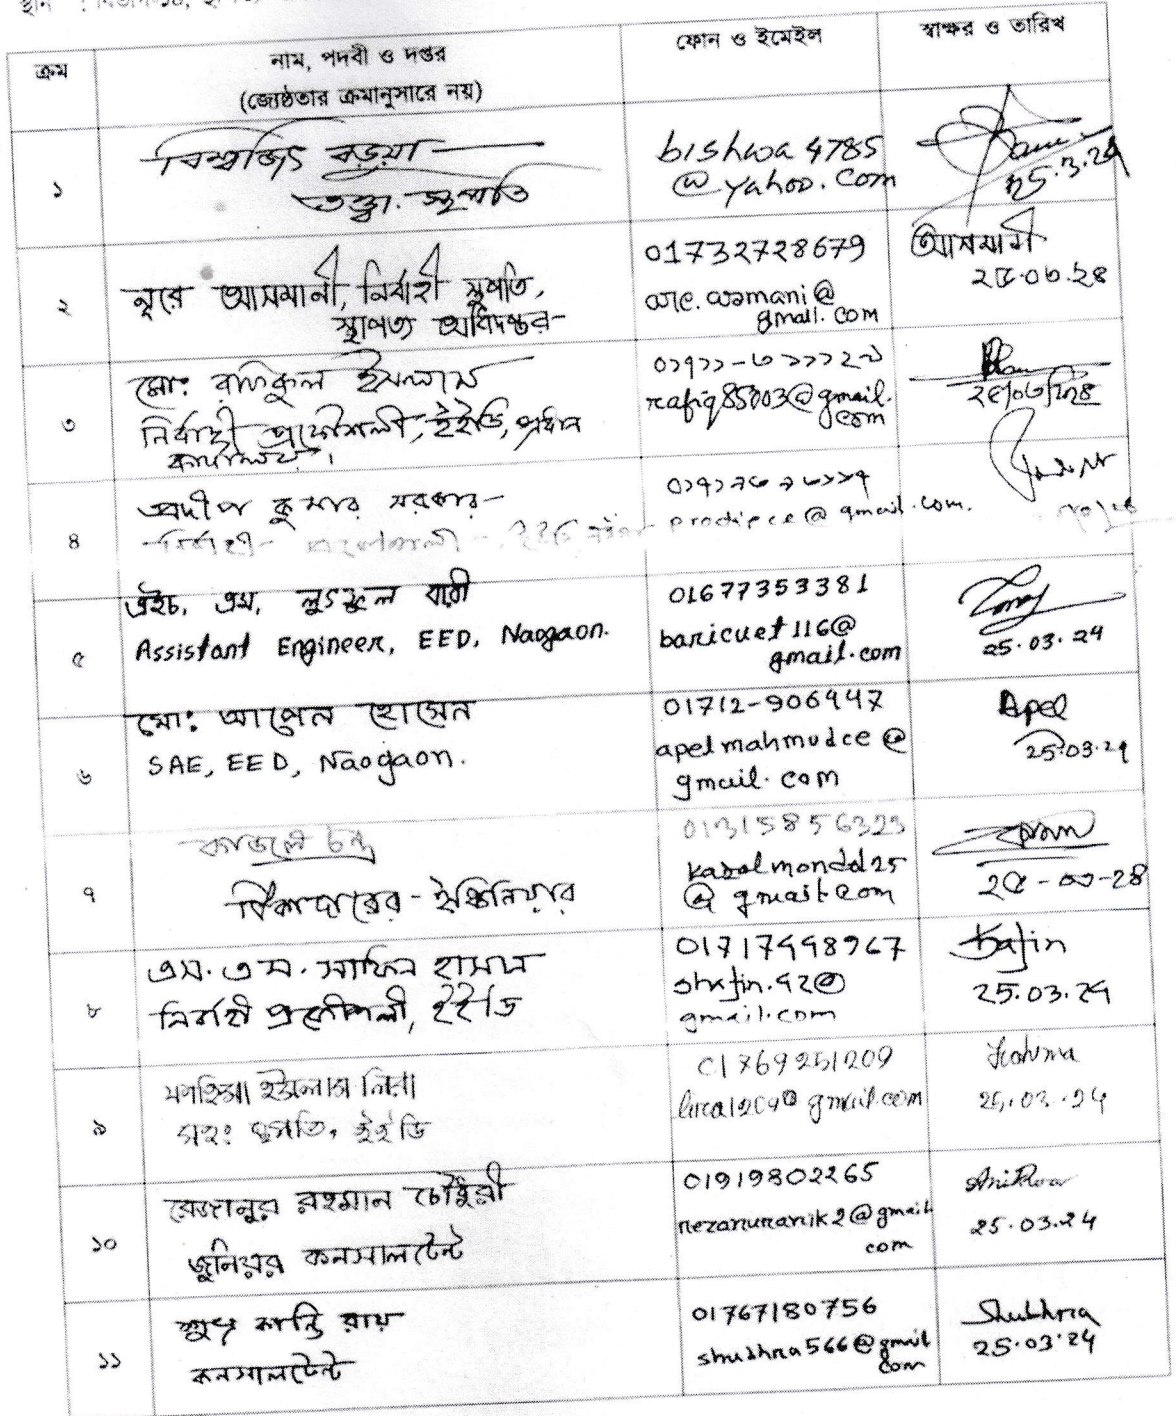 স্থান :
ক্রম
নাম, পদবী ও দপ্তর
(জ্যেষ্ঠতার ক্রমানুসারে নয়)
ফোন ও ইমেইল
স্বাক্ষর ও তারিখ
১
বিশ্বজিৎ বড়ুয়া
তত্ত্বা. স্থপতি
bishwa4785
@yahoo.com
25.3.24
২
নূরে আসমানী, নির্বাহী স্থপতি,
স্থাপত্য অধিদপ্তর
01732728679
arc.asmani@
gmail.com
আসমানী
২৫.০৩.২৪
৩
মো: রফিকুল ইসলাম
নির্বাহী প্রকৌশলী, ইইডি, প্রধান
কার্যালয়।
rafiq85003@gmail.
com
২৫/০৩/২৪
৪
প্রদীপ কুমার সরকার
নির্বাহী প্রকৌশলী
prodipece@gmail.com.
৫
এইচ. এম. লুৎফুল বারী
Assistant Engineer, EED, Naogaon.
01677353381
baricuet116@
gmail.com
25.03.24
৬
মো: আপেল হোসেন
SAE, EED, Naogaon.
01712-906447
apelmahmudce@
gmail.com
Apel
25.03.24
৭
কাজল চন্দ্র
ঠিকাদারের - ইঞ্জিনিয়ার
01315856323
@gmail.com
২৫-০৩-২৪
৮
এস. এম. সাফিন হাসান
নির্বাহী প্রকৌশলী, ইইডি
01717448967
shafin.92@
gmail.com
Safin
25.03.24
৯
ইসলাম লিরা
সহঃ স্থপতি, ইইডি
01769251209
lira1209@gmail.com
25.03.24
১০
রেজানুর রহমান চৌধুরী
জুনিয়র কনসালটেন্ট
01919802265
rezanuranik2@gmail.
com
25.03.24
১১
শুভ্র কান্তি রায়
কনসালটেন্ট
01767180756
shubhra566@gmail.
com
Shubhra
25.03.24